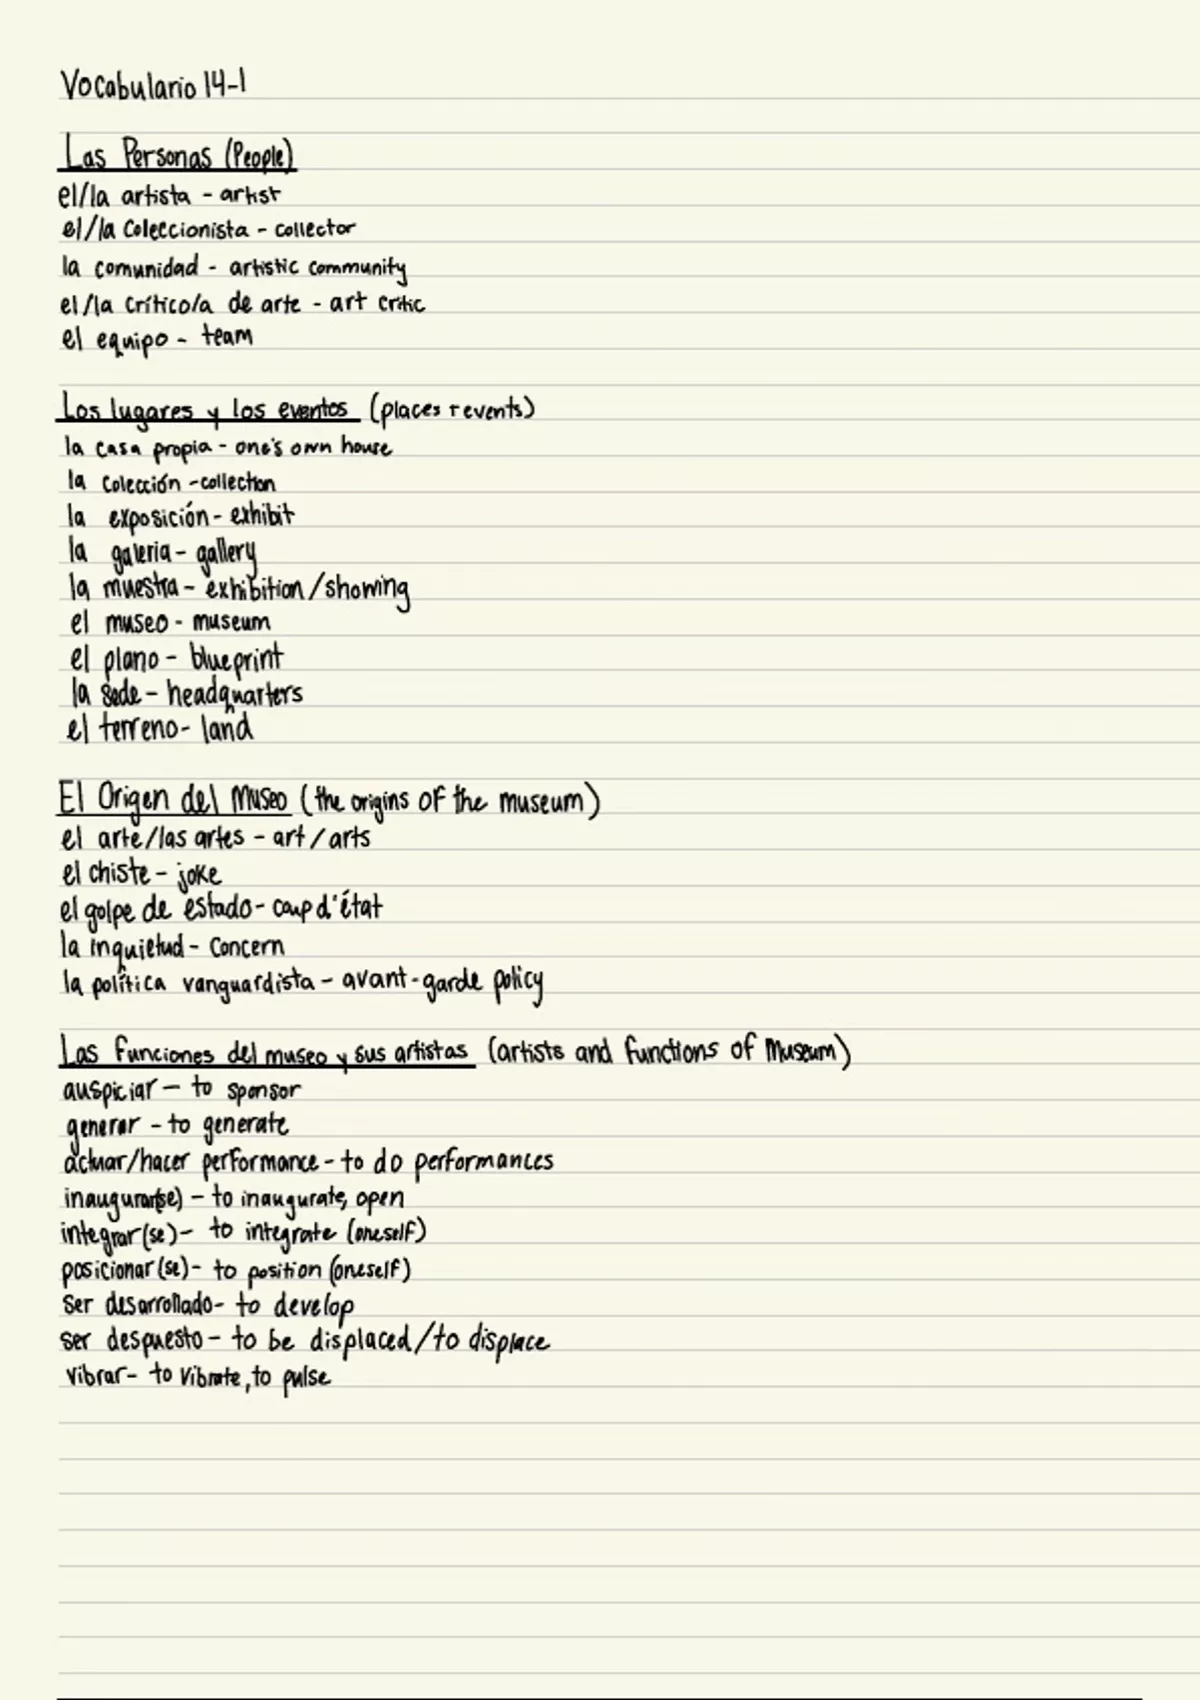 Vocabulario 14-1
Las Personas (People)
el/la artista - artist
el/la Coleccionista - collector
la comunidad - artistic community
el/la crítico/a de arte - art critic
el equipo - team
Los lugares y los eventos (places + events)
la casa propia - one's own house
la colección - collection
la exposición - exhibit
la galeria - gallery
la muestra - exhibition/showing
el museo - museum
el plano - blueprint
la sede - headquarters
el terreno - land
El Origen del Museo (the origins of the museum)
el arte/las artes - art/arts
el chiste - joke
el golpe de estado - coup d'état
la inquietud - concern
la política vanguardista - avant-garde policy
Las funciones del museo y sus artistas (artists and functions of Museum)
auspiciar - to sponsor
generar - to generate
actuar/hacer performance - to do performances
inaugurar(se) - to inaugurate, open
integrar(se) - to integrate (oneself)
posicionar(se) - to position (oneself)
ser desarrollado - to develop
ser despuesto - to be displaced/to displace
vibrar - to vibrate, to pulse